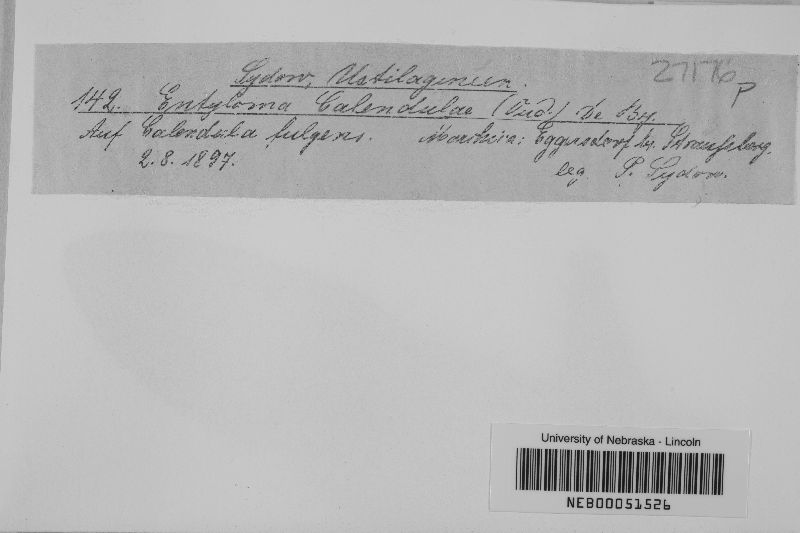 Sydow, Ustilagineen.
27176
P
142. Entyloma Calendulae (Oud.) De By.
Auf Calendula fulgens. Marchica: Eggersdorf by. Straussberg.
2. 8. 1897. leg. P. Sydow.
University of Nebraska - Lincoln
NEB00051526